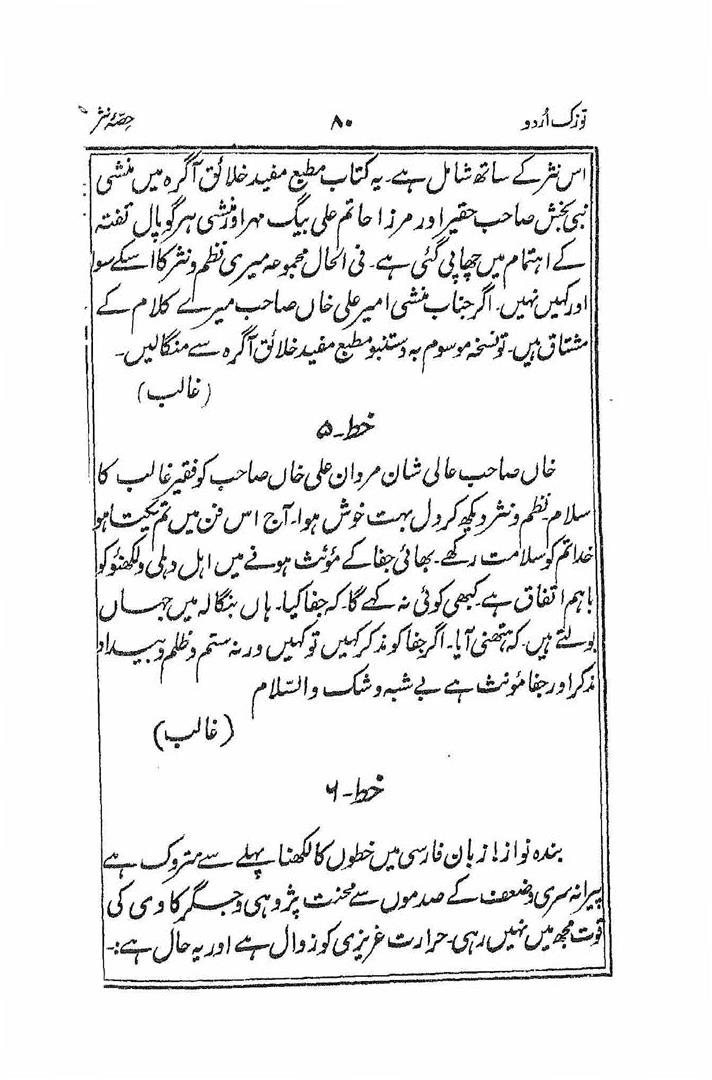 توزک اُردو ۸۰ حصّۂ نثر
اس نثر کے ساتھ شامل ہے۔ یہ کتاب مطبع مفید خلائق آگرہ میں منشی
نبی بخش صاحب حقیر اور مرزا حاتم علی بیگ مہر اور منشی ہر گوپال تفتہ
کے اہتمام میں چھاپی گئی ہے۔ فی الحال مجموعہ میری نظم و نثر کا اسکے سوا
اور کہیں نہیں۔ اگر جناب منشی امیر علی خاں صاحب میرے کلام کے
مشتاق ہیں۔ تو نسخہ موسوم بہ دستنبو مطبع مفید خلائق آگرہ سے منگالیں۔
(غالب)
خط۔ ۵
خاں صاحب عالی شان مردان علی خاں صاحب کو فقیر غالب کا
سلام۔ نظم و نثر دیکھ کر دل بہت خوش ہوا۔ آج اس فن میں تم یکتا ہو
خدا تم کو سلامت رکھے۔ بھائی جفا کے مؤنث ہونے میں اہل دہلی و لکھنؤ کو
باہم اتفاق ہے۔ کبھی کوئی نہ کہے گا۔ کہ جفا کیا۔ ہاں بنگالہ میں جہاں
بولتے ہیں۔ کہ ہتھنی آیا۔ اگر جفا کو مذکر کہیں تو کہیں ورنہ ستم و ظلم و بیداد
مذکر اور جفا مؤنث ہے بے شبہ و شک والسّلام
(غالب)
خط۔ ۶
بندہ نواز! زبان فارسی میں خطوں کا لکھنا پہلے سے متروک ہے
پیرانہ سری و ضعف کے صدموں سے محنت پژوہی و جگر کاوی کی
قوت مجھ میں نہیں رہی۔ حرارت غریزی کو زوال ہے اور یہ حال ہے:۔